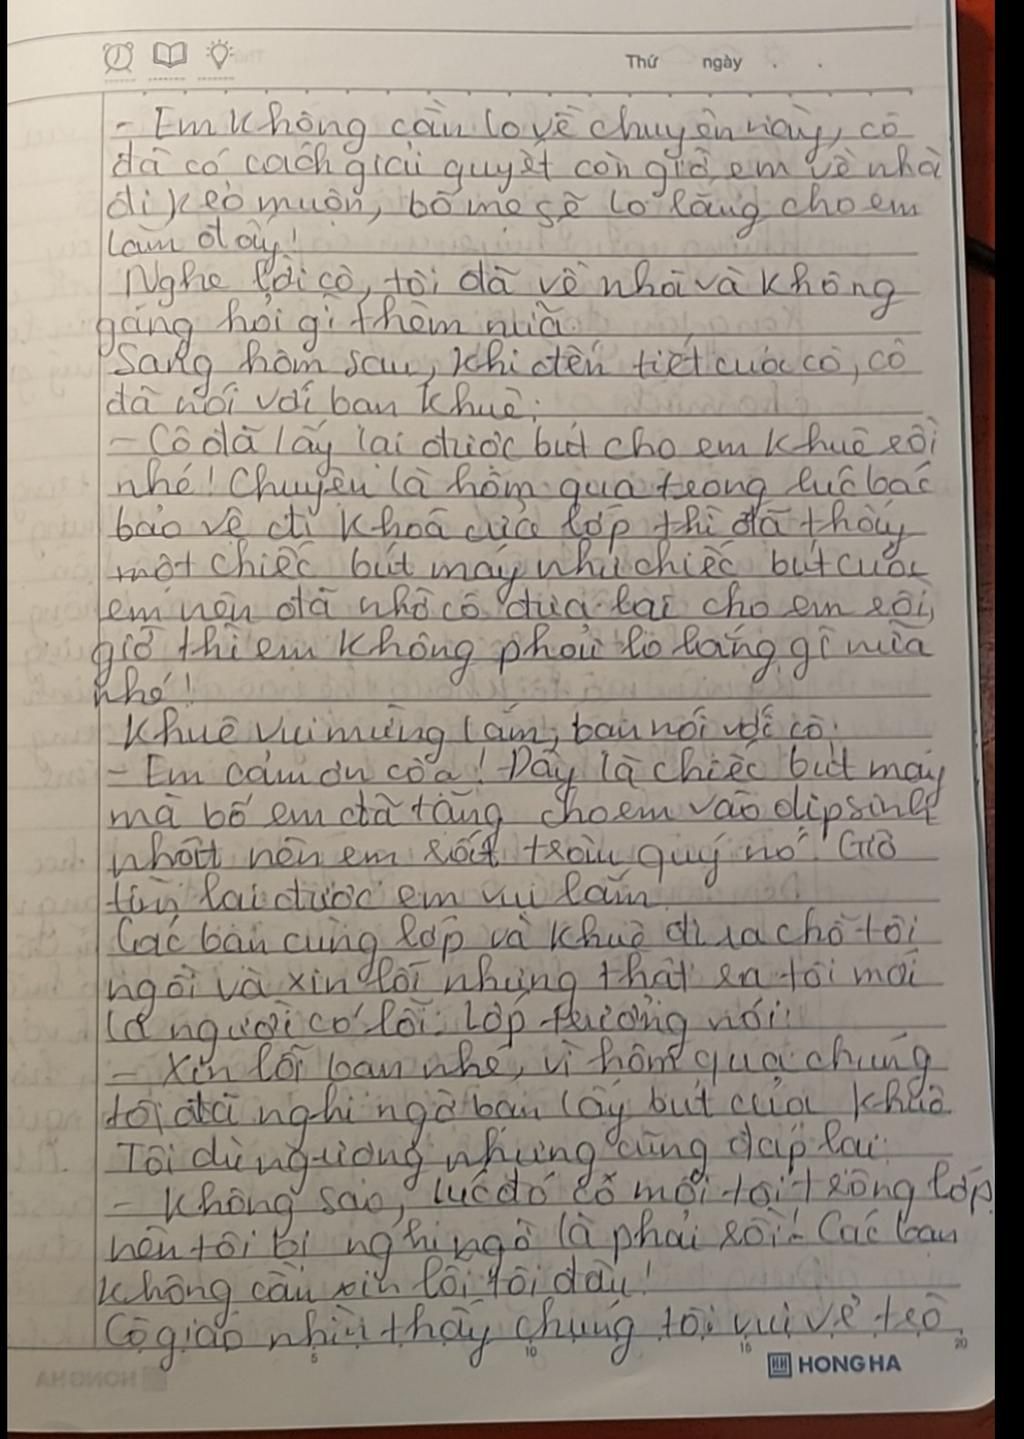 Thứ ngày
- Em không cần lo về chuyện này, cô
đã có cách giải quyết còn giờ em về nhà
đi kẻo muộn, bố mẹ sẽ lo lắng cho em
lắm đấy!
Nghe lời cô, tôi đã về nhà và không
gặng hỏi gì thêm nữa.
Sáng hôm sau, khi đến tiết của cô, cô
đã nói với bạn Khuê:
- Cô đã lấy lại được bút cho em Khuê rồi
nhé! Chuyện là hôm qua trong lúc bác
bảo vệ đi khoá cửa lớp thì đã thấy
một chiếc bút máy như chiếc bút của
em nên đã nhờ cô đưa lại cho em rồi,
giờ thì em không phải lo lắng gì nữa
nhé!
Khuê vui mừng lắm, bạn nói với cô:
- Em cảm ơn cô ạ! Đây là chiếc bút máy
mà bố em đã tặng cho em vào dịp sinh
nhật nên em rất trân quý nó. Giờ
tìm lại được em vui lắm.
Các bạn cùng lớp và Khuê đi ra chỗ tôi
ngồi và xin lỗi nhưng thật ra tôi mới
là người có lỗi. Lớp trưởng nói:
- Xin lỗi bạn nhé, vì hôm qua chúng
tôi đã nghi ngờ bạn lấy bút của Khuê.
Tôi dù ngượng nhưng cũng đáp lại:
- Không sao, lúc đó có mỗi tôi trong lớp
nên tôi bị nghi ngờ là phải rồi! Các bạn
không cần xin lỗi tôi đâu!
Cô giáo nhìn thấy chúng tôi vui vẻ trò
5 10 15 20
HH HONG HA